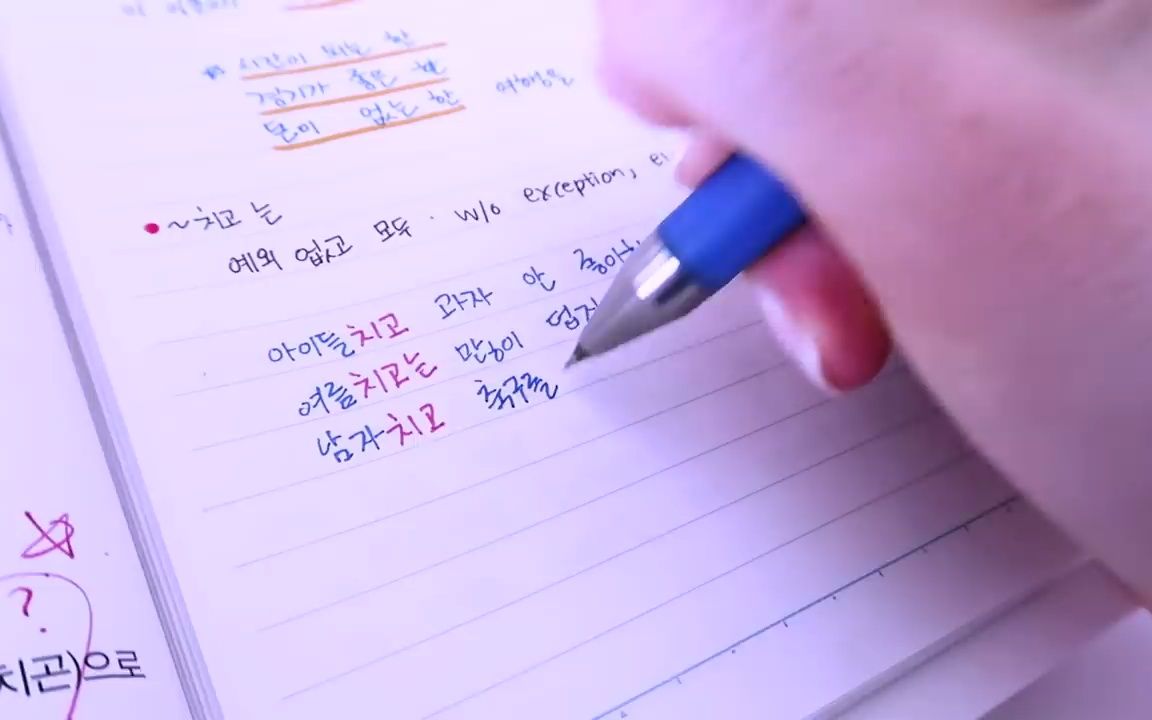 시간이 되는 한
경기가 좋은 한
돈이 없는 한 여행을
~치고 는
예외 없고 모두 . w/o exception,
아이들치고 과자 안
여름치고는 많이
남자치고 축구를
?
치곤)으로